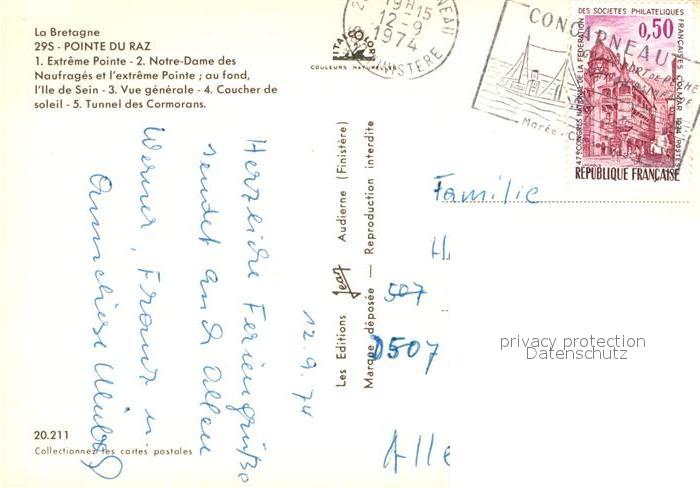 La Bretagne
29S - POINTE DU RAZ
1. Extrême Pointe - 2. Notre-Dame des
Naufragés et l'extrême Pointe ; au fond,
l'Ile de Sein - 3. Vue générale - 4. Coucher de
soleil - 5. Tunnel des Cormorans.
19H15
12-9
1974
FINISTÈRE
ITALCOLOR
COULEURS NATURELLES
CONCARNEAU
PORT DE PÊCHE
47e CONGRÈS NATIONAL DE LA FÉDÉRATION
DES SOCIÉTÉS PHILATÉLIQUES
FRANÇAISES COLMAR 1974 POSTES
0,50
RÉPUBLIQUE FRANÇAISE
12.9.74
Herzliche Feriengrüße
sendet euch allen
Werner, Franz u.
Anneliese
Les Editions Jean Audierne (Finistère)
Marque déposée — Reproduction interdite
Familie
507
D507
Alle
privacy protection
Datenschutz
20.211
Collectionnez les cartes postales